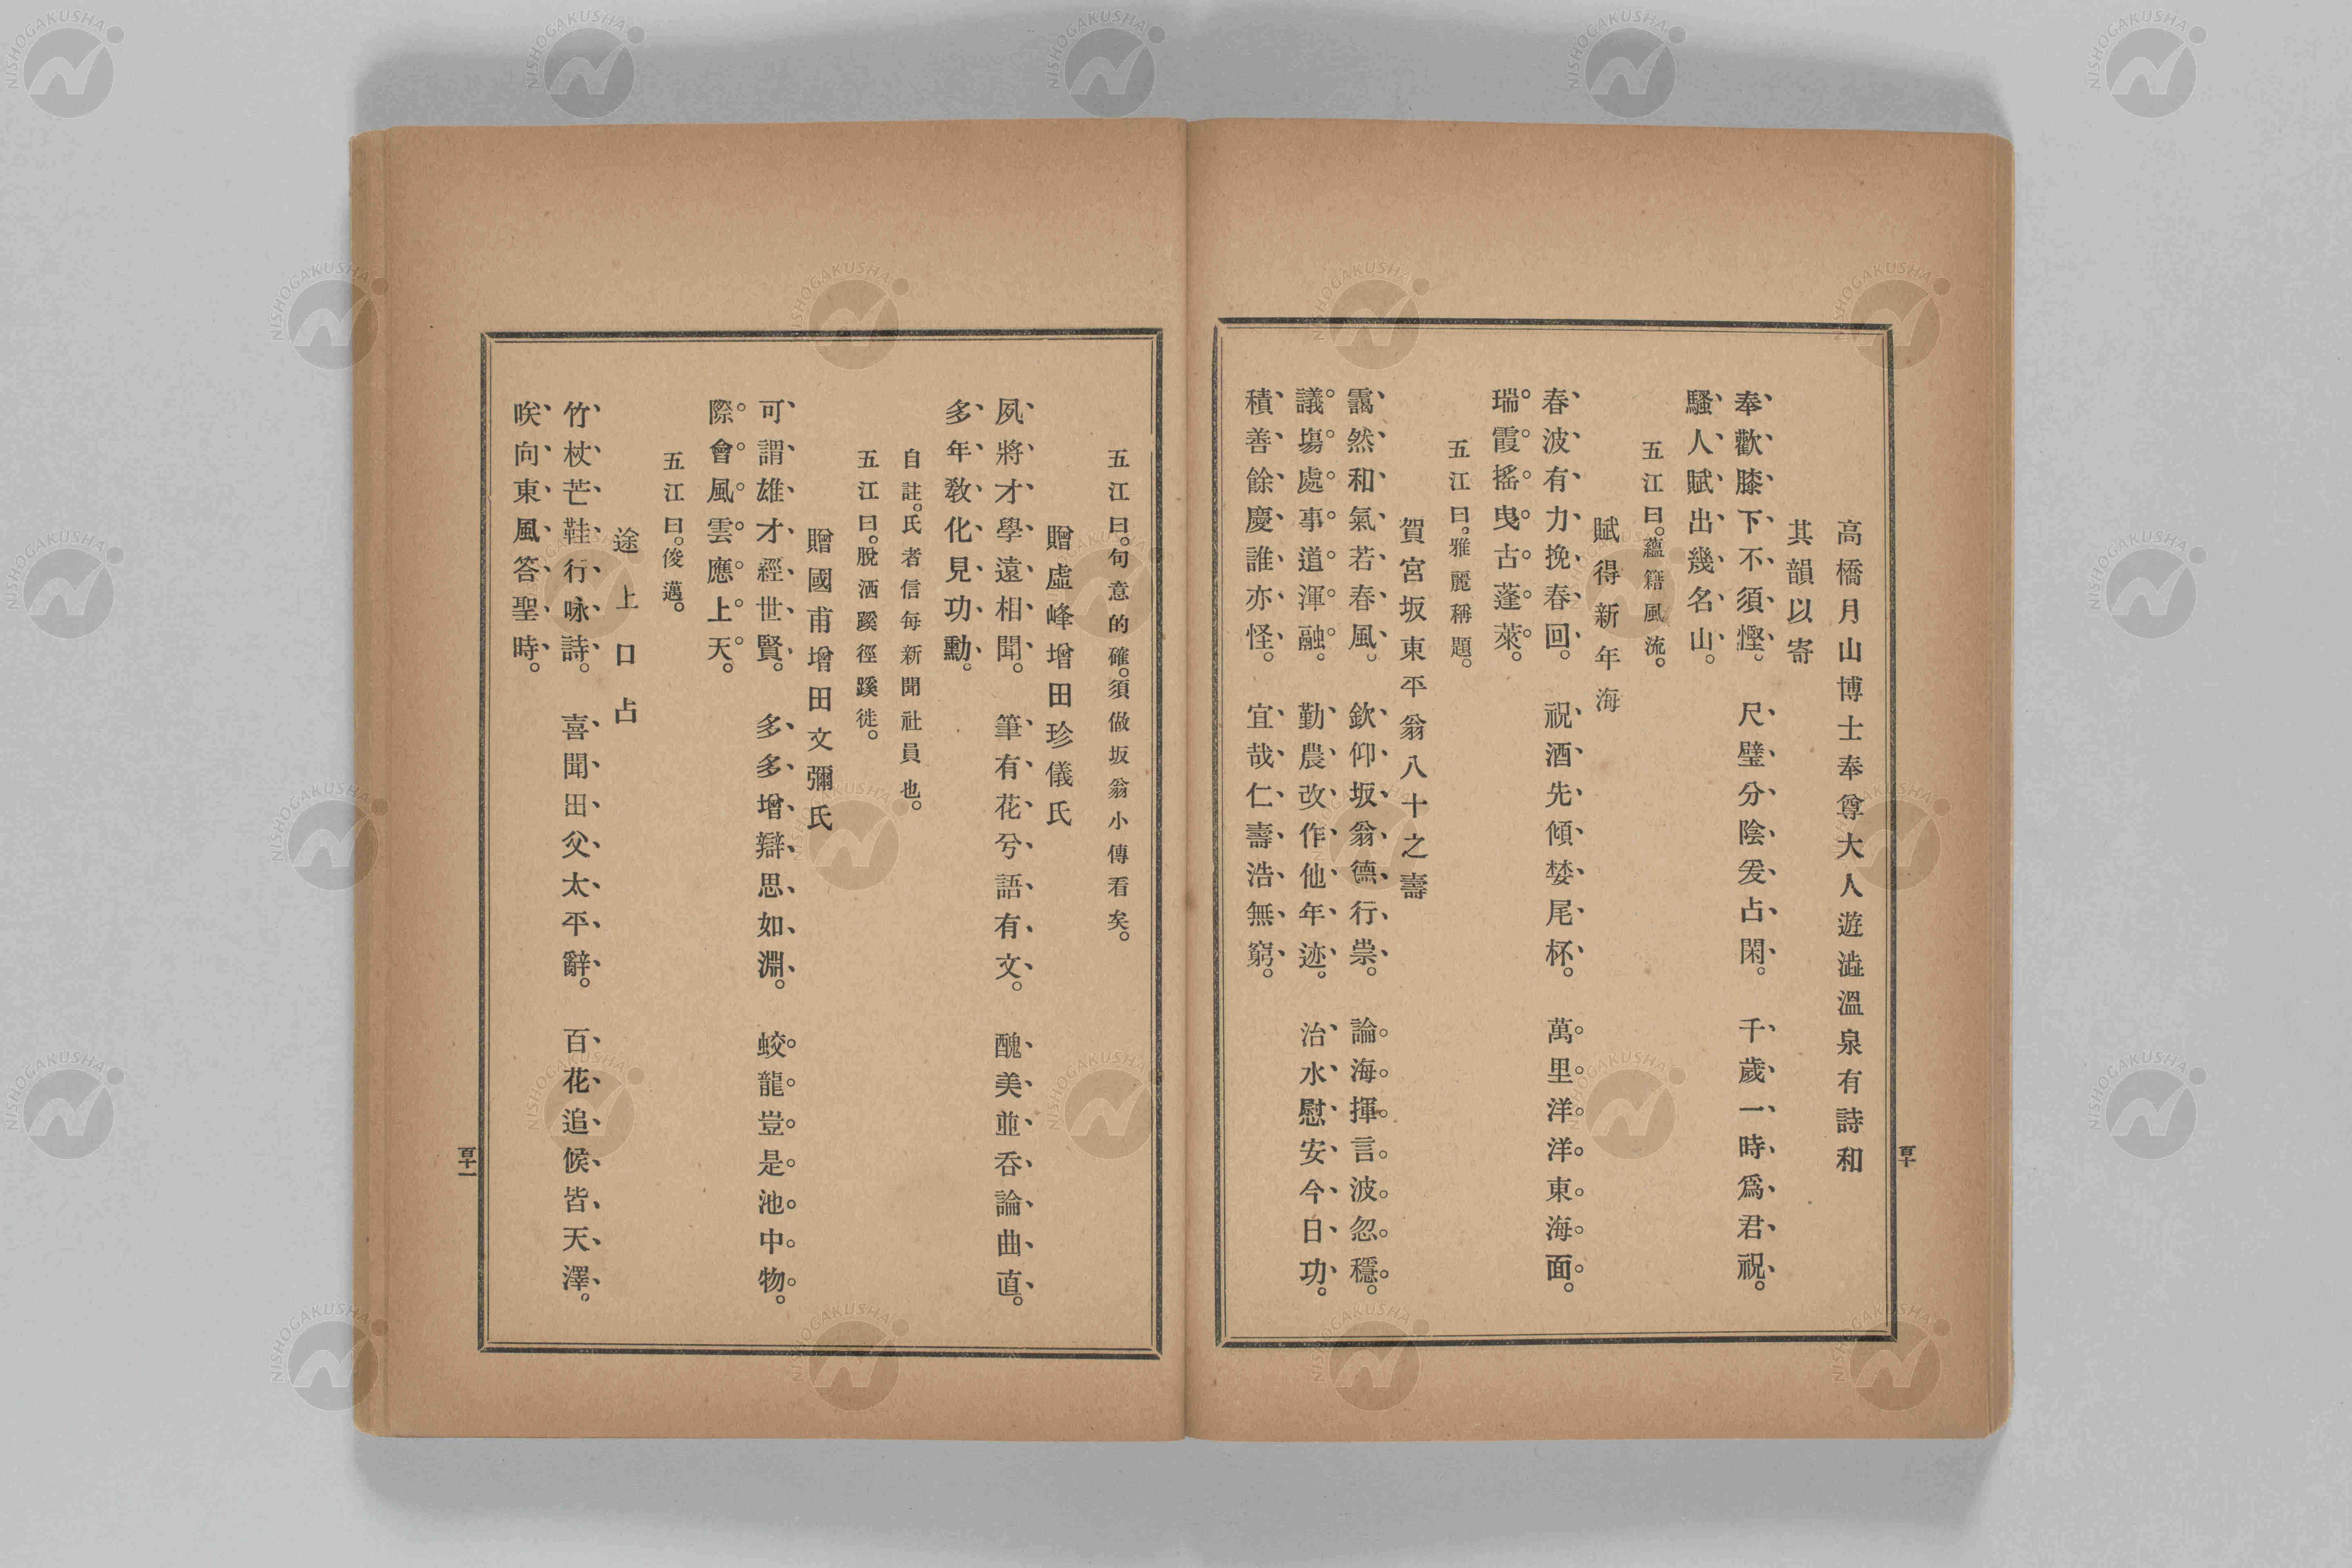 高橋月山博士奉尊大人遊澁溫泉有詩和
其韻以寄
奉歡膝下不須慳。 尺璧分陰爰占閑。 千歲一時爲君祝。
騷人賦出幾名山。
五江曰。蘊籍風流。
賦得新年海
春波有力挽春回。 祝酒先傾婪尾杯。 萬里洋洋東海面。
瑞霞搖曳古蓬萊。
五江曰。雅麗稱題。
賀宮坂東平翁八十之壽
靄然和氣若春風。 欽仰坂翁德行崇。 論海揮言波忽穩。
議塲處事道渾融。 勤農改作他年迹。 治水慰安今日功。
積善餘慶誰亦怪。 宜哉仁壽浩無窮。
百十
五江曰。句意的確。須做坂翁小傳看矣。
贈虛峰增田珍儀氏
夙將才學遠相聞。 筆有花兮語有文。 醜美並呑論曲直。
多年敎化見功勳。
自註。氏者信每新聞社員也。
五江曰。脫洒蹊徑蹊徙。
贈國甫增田文彌氏
可謂雄才經世賢。 多多增辯思如淵。 蛟龍豈是池中物。
際會風雲應上天。
五江曰。俊邁。
途上口占
竹杖芒鞋行咏詩。 喜聞田父太平辭。 百花追候皆天澤。
唉向東風答聖時。
百十一
NISHOGAKUSHA